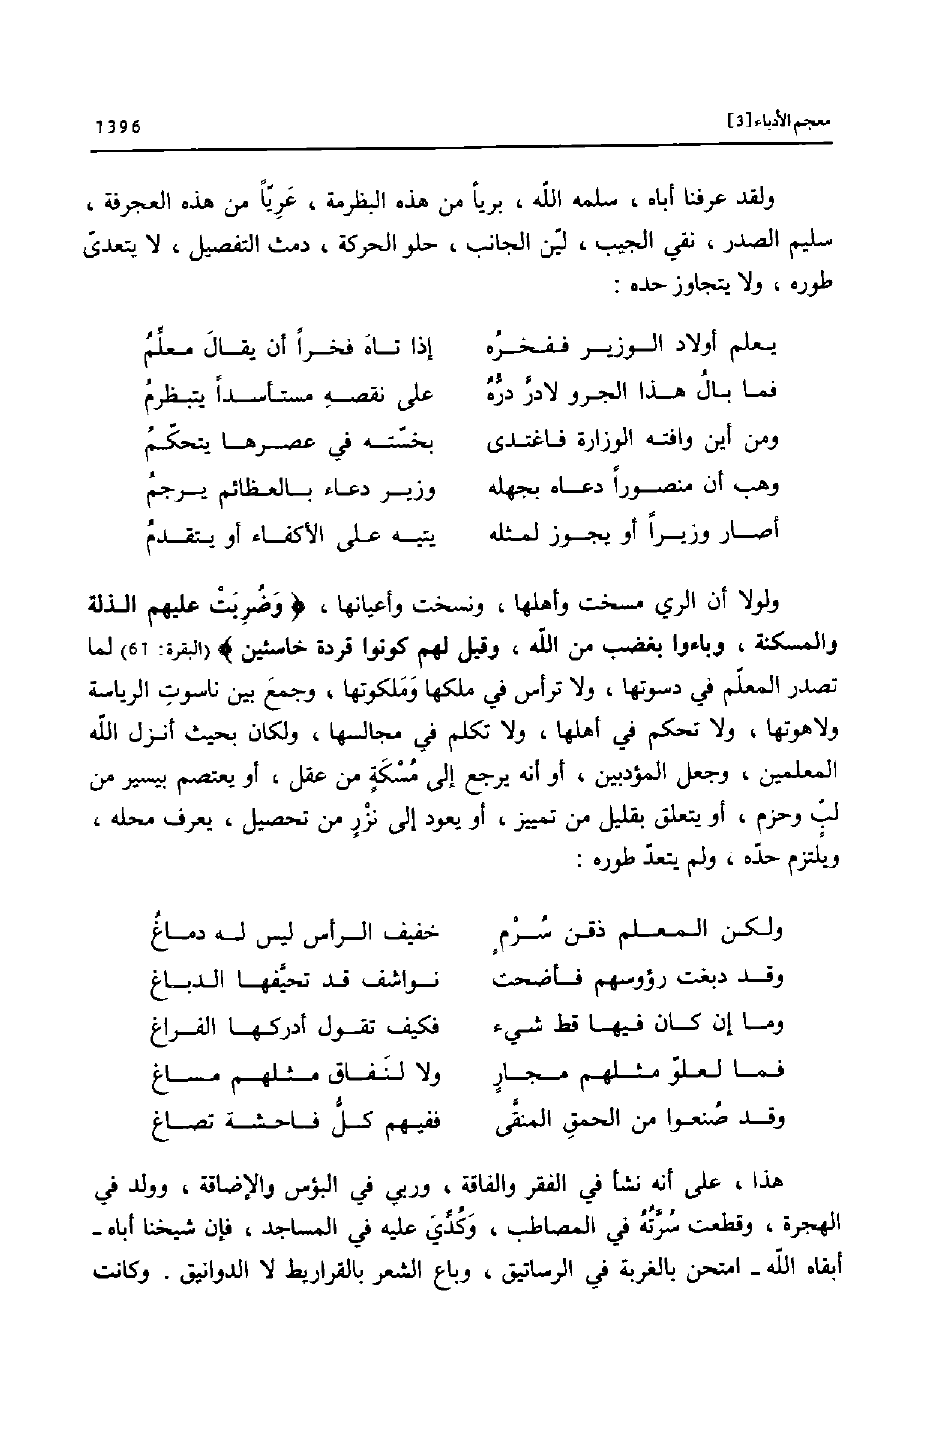 معجم الأدباء [3] 1396
ولقد عرفنا أباه ، سلمه اللّه ، برياً من هذه البظرمة ، عَرِيّاً من هذه العجرفة ،
سليم الصدر ، نقي الجيب ، ليّن الجانب ، حلو الحركة ، دمث التفصيل ، لا يتعدىّ
طوره ، ولا يتجاوز حده :
يعلم أولاد الوزير ففخرُه إذا تاهَ فخراً أن يقالَ معلّمُ
فما بالُ هذا الجرو لادرَّ درُّهُ على نقصه مستأسداً يتبظرمُ
ومن أين وافته الوزارة فاغتدى بخسّته في عصرها يتحكّمُ
وهب أن منصوراً دعاه بجهله وزير دعاء بالعظائم يرجمُ
أصار وزيراً أو يجوز لمثله يتيه على الأكفاء أو يتقدمُ
ولولا أن الري مسخت وأهلها ، ونسخت وأعيانها ، ﴿ وَضُرِبَتْ عليهم الذلة
والمسكنة ، وباءوا بغضب من اللّه ، وقيل لهم كونوا قردة خاسئين ﴾ (البقرة: 61) لما
تصدر المعلّم في دسوتها ، ولا ترأس في ملكها وَمَلكوتها ، وجمعَ بين ناسوتِ الرياسة
ولاهوتها ، ولا تحكم في أهلها ، ولا تكلم في مجالسها ، ولكان بحيث أنزل اللّه
المعلمين ، وجعل المؤدبين ، أو أنه يرجع إلى مُسْكَةٍ من عقل ، أو يعتصم بيسير من
لبٍّ وحزم ، أو يتعلق بقليل من تمييز ، أو يعود إلى نزْرٍ من تحصيل ، يعرف محله ،
ويلتزم حدّه ، ولم يتعدّ طوره :
ولكن المعلم ذقن سُرْمٍ خفيف الرأس ليس له دماغُ
وقد دبغت رؤوسهم فأضحت نواشف قد تحيَّفها الدباغ
وما إن كان فيها قط شيء فكيف تقول أدركها الفراغ
فما لعلوّ مثلهم مجارٍ ولا لنَفاق مثلهم مساغ
وقد صُنعوا من الحمقِ المنقَّى ففيهم كلُّ فاحشة تصاغ
هذا ، على أنه نشأ في الفقر والفاقة ، وربي في البؤس والإضاقة ، وولد في
الهجرة ، وقطعت سُرَّتُهُ في المصاطب ، وَكُدِّيَ عليه في المساجد ، فإن شيخنا أباه ـ
أبقاه اللّه ـ امتحن بالغربة في الرساتيق ، وباع الشعر بالقراريط لا الدوانيق . وكانت